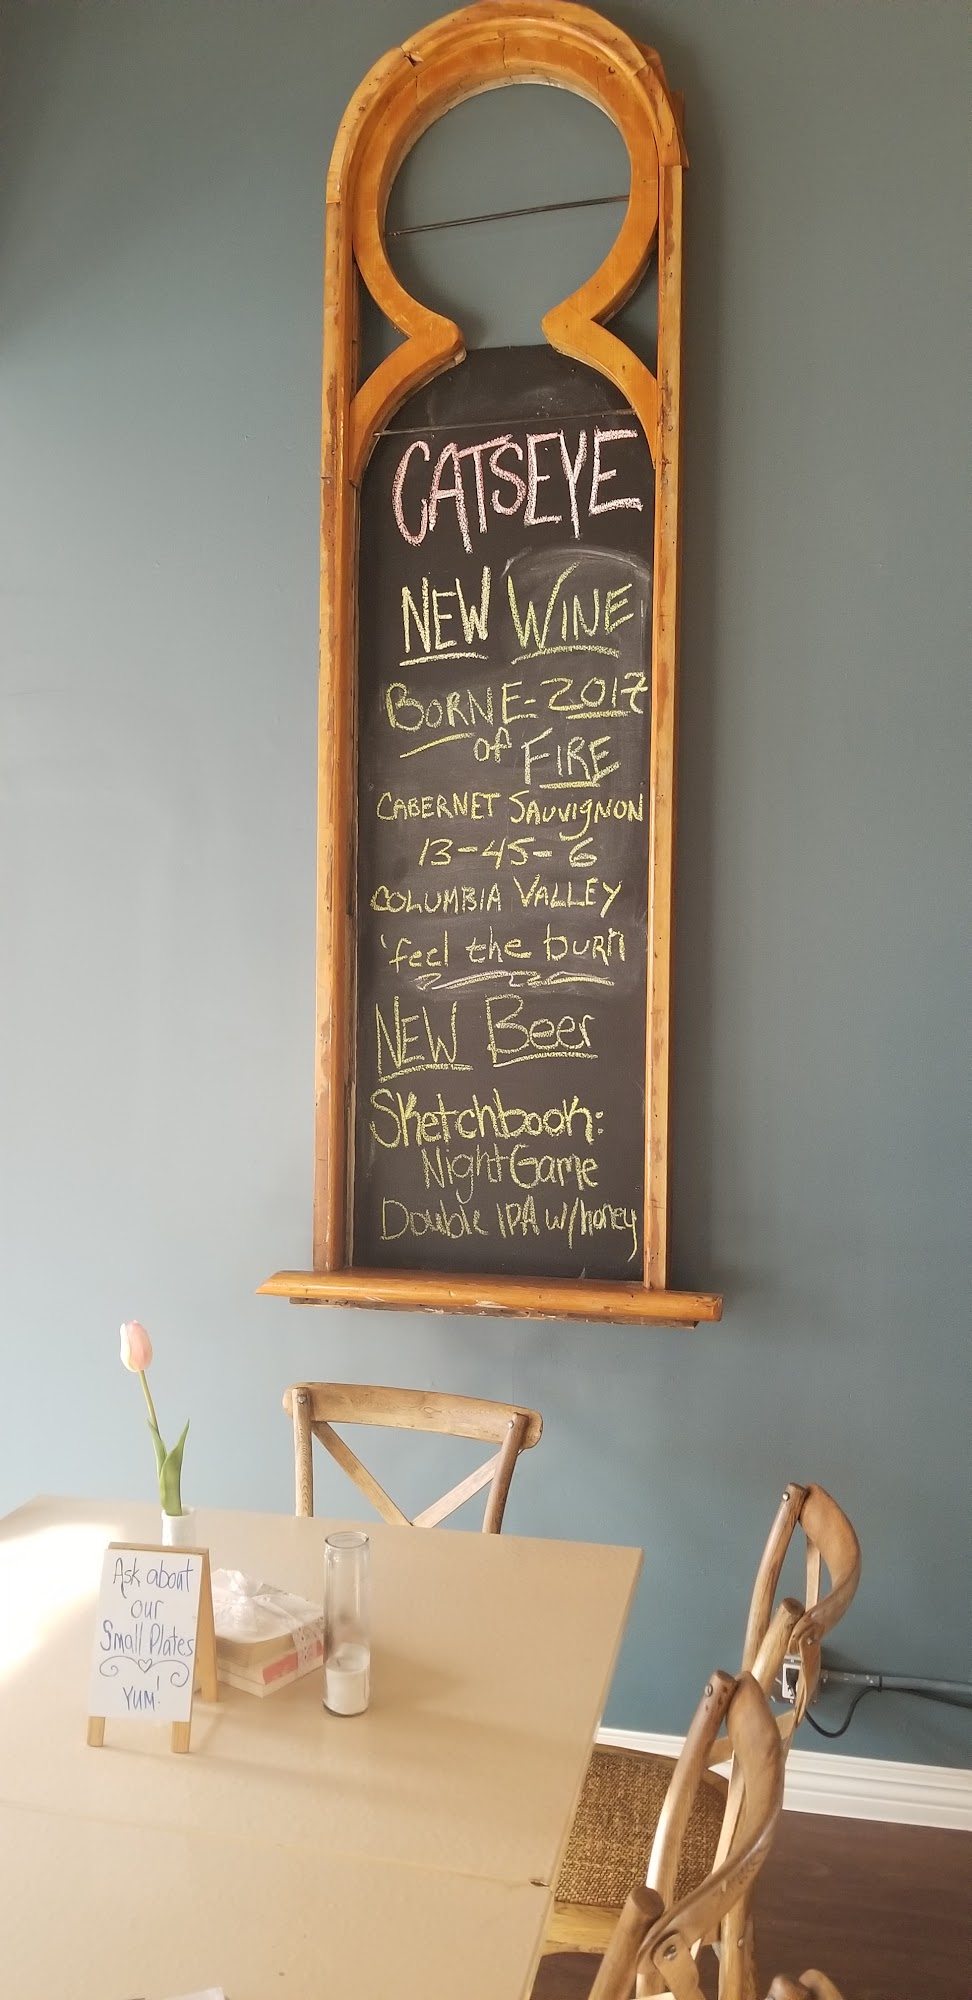 CATSEYE
NEW WINE
BORNE-2017
of FIRE
CABERNET SAUVIGNON
13-45-6
COLUMBIA VALLEY
'feel the burn
NEW Beer
Sketchbook:
Night Game
Double IPA w/honey
Ask about
our
Small Plates
YUM!